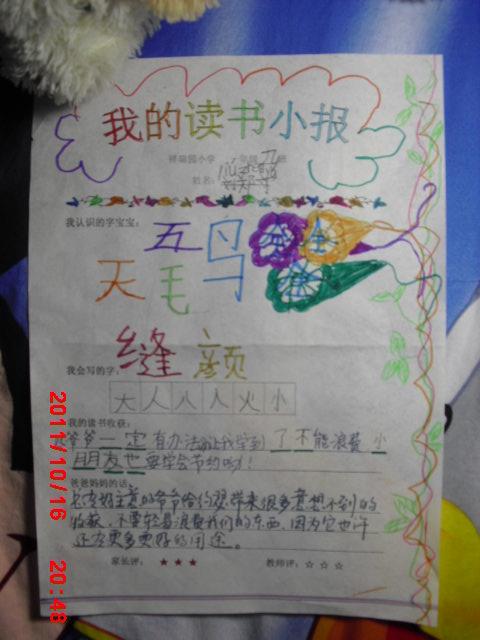 我的读书小报
祥瑞园小学 一年级 九班
姓名:
我认识的字宝宝:
五 鸟 金 全
天 毛
缝 颜
我会写的字:
大 人 八 人 火 小
我的读书收获:
爷爷一定有办法让我学到了不能浪费小
朋友也要学会节约哦!
爸爸妈妈的话:
总有好主意的爷爷给约瑟带来很多意想不到的
收获,不要轻易浪费我们的东西,因为它也许
还有更多更好的用途。
家长评: ★★★ 教师评: ☆☆☆
2011/10/16 20:48